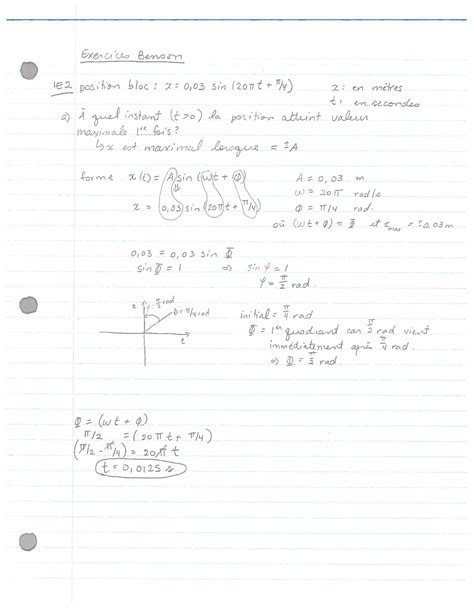 Exercices Benson
1E2 position bloc : x = 0,03 sin (20πt + π/4) x: en mètres
t: en secondes
a) À quel instant (t>0) la position atteint valeur
maximale 1ère fois?
↳ x est maximal lorsque = ±A
forme x(t) = A sin (ωt + ϕ) A = 0,03 m
ω = 20π rad/s
x = 0,03 sin (20πt + π/4) ϕ = π/4 rad.
où (ωt + ϕ) = Φ et x max = ±0,03m
0,03 = 0,03 sin Φ
sin Φ = 1 ⇒ sin φ = 1
φ = π/2 rad.
x φ = π/2 rad
ϕ = π/4 rad
t
initial = π/4 rad
Φ = 1er quadrant car π/2 rad vient
immédiatement après π/4 rad.
⇒ Φ = π/2 rad.
Φ = (ωt + ϕ)
π/2 = (20πt + π/4)
(π/2 - π/4) = 20πt
t = 0,0125 s